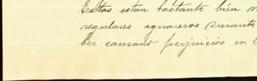 Estas estan bastante bien
regulares aguaceros durante
ber causado perjuicios en l